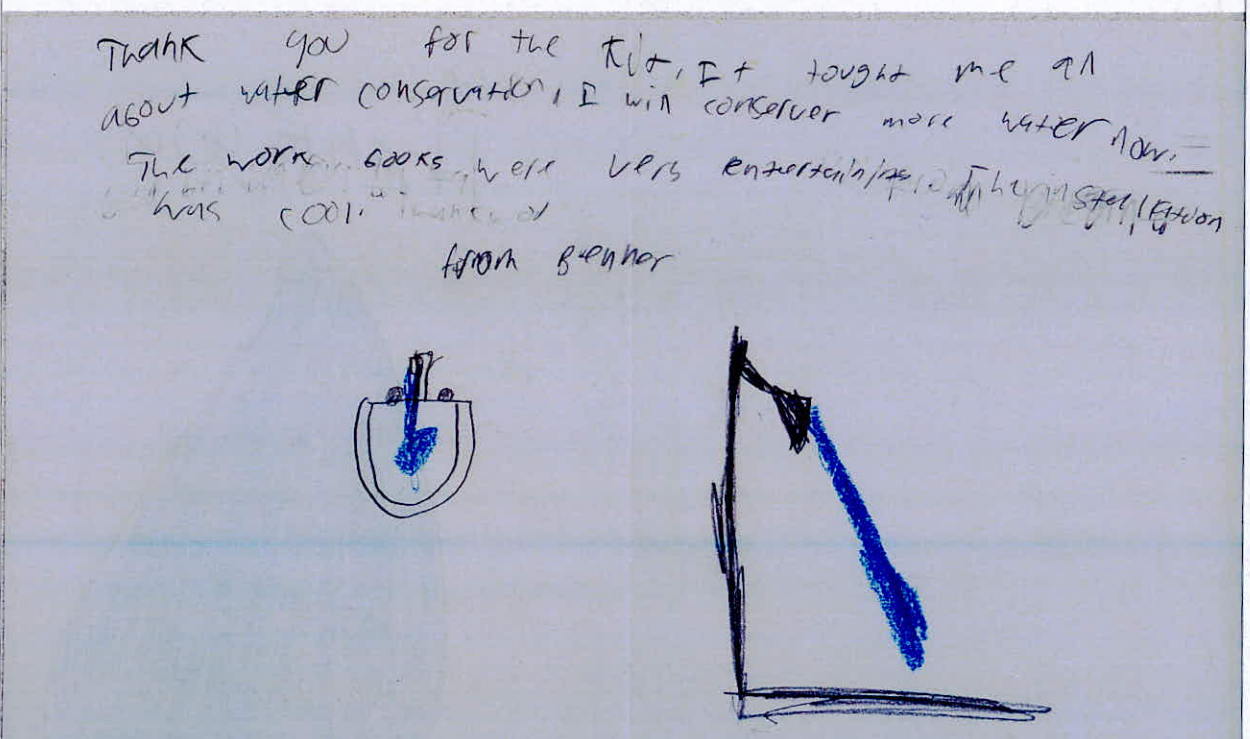 Thank you for the Kit, It tought me all
about water conservation, I will conserver more water now.
The work books were very entertaining. The installation
was cool.
from Bennor